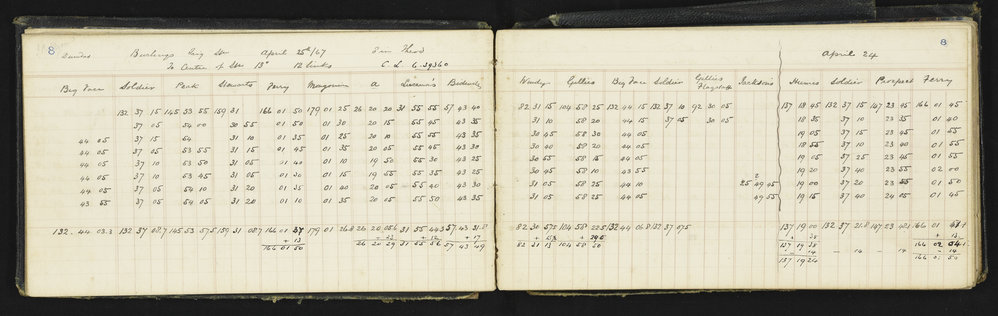 8 Dundas Burlings Trig Stn April 25th/67 8 in Theod
To Centre of Stn 13" 12 Links C L 6.29360
Big Face Soldier Peak Stewarts Ferry Mangonui A Lucien's
132 37 15 145 53 55 159 31 166 01 50 179 01 25 26 20 20 31 55 55 57 43 40
37 05 54 00 30 55 01 50 01 30 20 15 55 45 43 35
44 05 37 15 54 31 10 01 35 01 25 20 10 55 55 43 35
44 05 37 05 53 55 31 15 01 45 01 35 20 05 55 45 43 30
44 05 37 10 53 50 31 05 01 40 01 10 19 50 55 30 43 25
44 05 37 10 53 45 31 05 01 30 01 15 19 55 55 35 43 25
44 05 37 05 54 10 31 20 01 35 01 40 20 05 55 40 43 30
43 55 37 05 54 05 31 20 01 10 01 35 20 05 55 50 43 35
132 44 03.3 132 37 08.7 145 53 57.5 159 31 08.7 166 01 37 179 01 26.8 26 20 05.6 31 55 44.3 57 43 31.8
+ 13 + 17
166 01 50 26 20 29 31 55 56 57 43 49
8
April 24
Windy Gullies Big Face Soldier Gullies Flagstaff Jackson's Humes Soldier Prospect Ferry
82 31 15 104 58 25 132 44 15 132 37 10 92 30 05 137 18 45 132 37 15 147 23 45 166 01 45
31 10 58 20 44 15 37 05 30 05 18 35 37 10 23 35 01 40
30 45 58 30 44 05 19 05 37 15 23 45 01 55
30 40 58 20 44 05 18 55 37 10 23 40 01 55
30 55 58 15 44 05 19 05 37 25 23 45 01 55
30 45 58 10 43 55 19 20 37 40 23 55 02 00
31 05 58 25 44 10 25 49 05 19 00 37 20 23 55 01 50
31 05 58 25 44 05 49 55 19 15 37 40 24 05 01 45
82 30 57.5 104 58 22.5 132 44 06.8 132 37 07.5 137 19 00 132 37 21.8 147 23 42.5 166 01
82 31 13 104 58 50 137 19 38 166 02
- 14 - 14 - 14 - 14
137 19 24 166 01 50